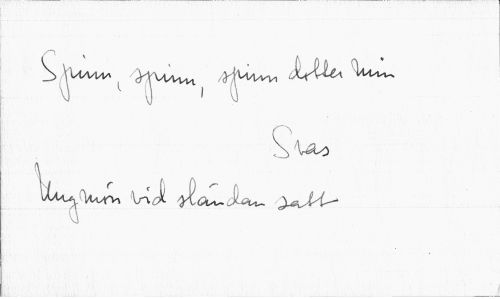 Spinn, spinn, spinn dotter min
Svas
Ungmön vid sländan satt